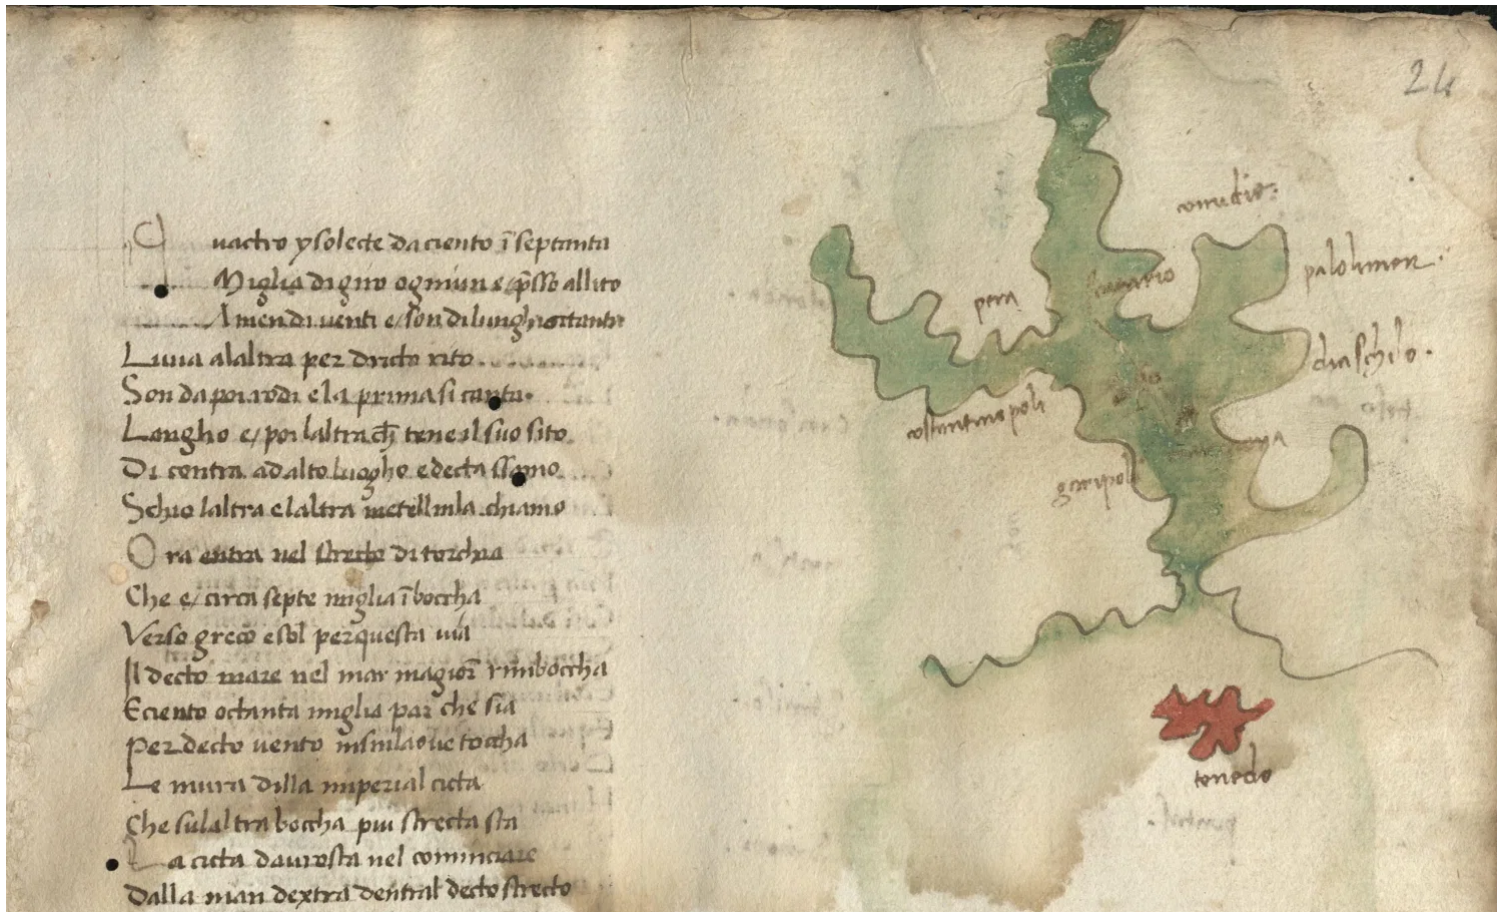 24
Quactro ysolecte da ciento ī septanta
Miglia di giro ogniuna e p̄sso allito
A men di venti e son di lunghi octanta
Luna alaltra per dricto rito
Son da poi rodi e la prima si canta
Longho e/ poi laltra ch̄ tene il suo sito
Di contra ad alto luogho e decta ssamo
Schio laltra e laltra metellinla chiamo
Ora entra nel strecto di torchia
Che e/ circa septe miglia ī boccha
Verso greco e sol per questa via
Il decto mare nel mar magior rimboccha
E ciento octanta miglia par che sia
Per decto vento insula ove toccha
Le mura dilla imperial cicta
Che sulaltra boccha piu strecta sta
La cicta davrosta nel cominciare
Dalla man dextra dentral decto strecto
comidie
palolimen
pera
diaschilo
costantinopoli
garipoli
tenedo